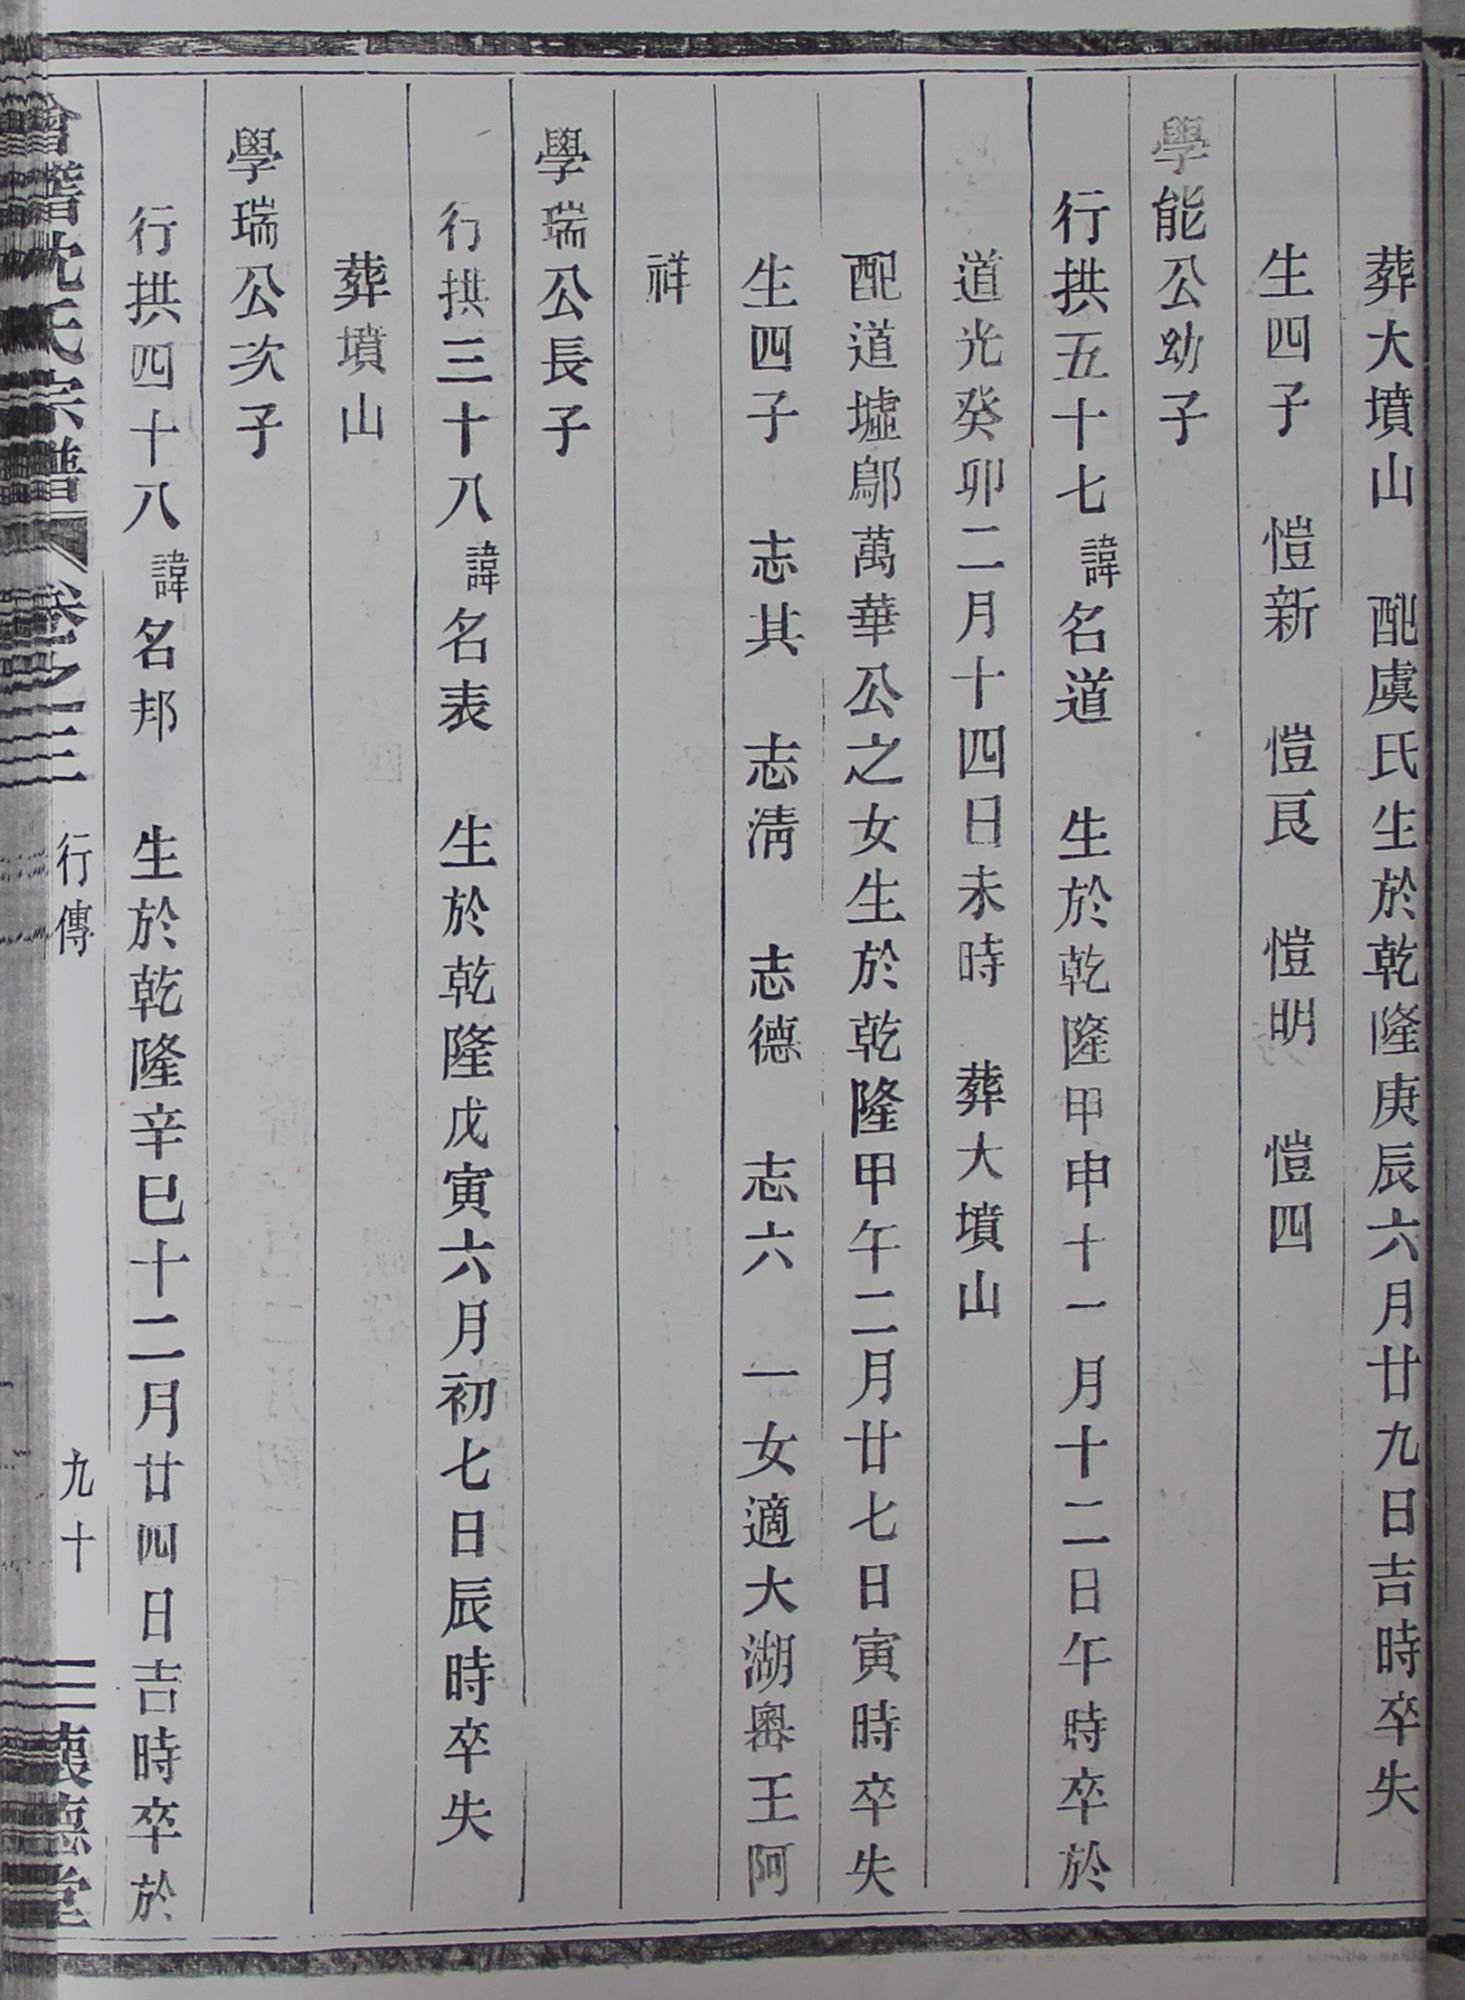 葬大墳山　配虞氏生於乾隆庚辰六月廿九日吉時卒失
生四子　愷新　愷良　愷明　愷四
學能公幼子
行拱五十七諱名道　生於乾隆甲申十一月十二日午時卒於
道光癸卯二月十四日未時　葬大墳山
配道墟鄔萬華公之女生於乾隆甲午二月廿七日寅時卒失
生四子　志其　志淸　志德　志六　一女適大湖嶴王阿
祥
學瑞公長子
行拱三十八諱名表　生於乾隆戊寅六月初七日辰時卒失
葬墳山
學瑞公次子
行拱四十八諱名邦　生於乾隆辛巳十二月廿四日吉時卒於
會稽沈氏宗譜　卷之三　行傳　九十　懷德堂